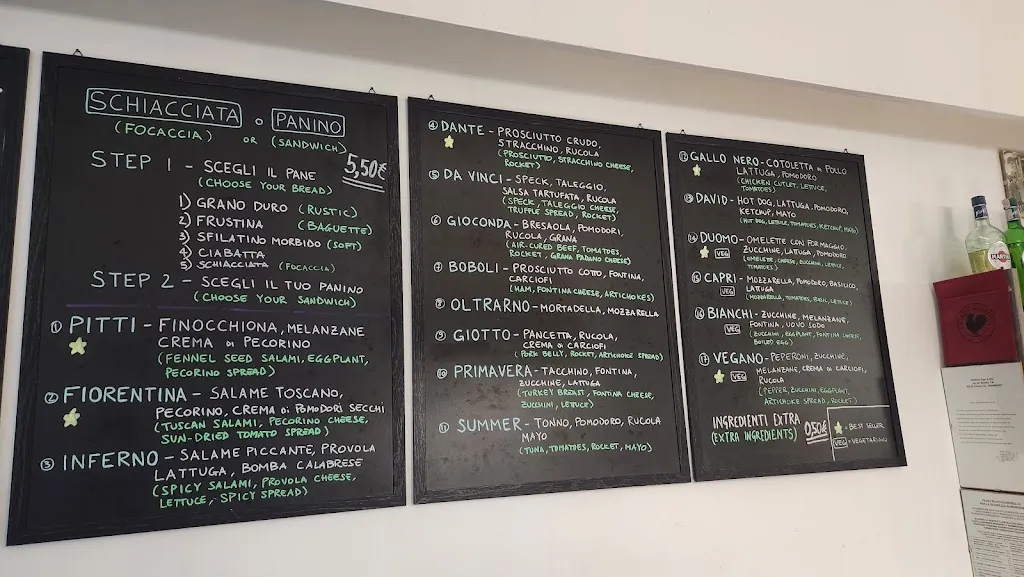 SCHIACCIATA o PANINO
(FOCACCIA) OR (SANDWICH)
5,50€
STEP 1 - SCEGLI IL PANE
(CHOOSE YOUR BREAD)
1) GRANO DURO (RUSTIC)
2) FRUSTINA (BAGUETTE)
3) SFILATINO MORBIDO (SOFT)
4) CIABATTA
5) SCHIACCIATA (FOCACCIA)
STEP 2 - SCEGLI IL TUO PANINO
(CHOOSE YOUR SANDWICH)
① PITTI - FINOCCHIONA, MELANZANE
CREMA DI PECORINO
(FENNEL SEED SALAMI, EGGPLANT,
PECORINO SPREAD)
② FIORENTINA - SALAME TOSCANO,
PECORINO, CREMA DI POMODORI SECCHI
(TUSCAN SALAMI, PECORINO CHEESE,
SUN-DRIED TOMATO SPREAD)
③ INFERNO - SALAME PICCANTE, PROVOLA
LATTUGA, BOMBA CALABRESE
(SPICY SALAMI, PROVOLA CHEESE,
LETTUCE, SPICY SPREAD)
④ DANTE - PROSCIUTTO CRUDO,
STRACCHINO, RUCOLA
(PROSCIUTTO, STRACCHINO CHEESE,
ROCKET)
⑤ DA VINCI - SPECK, TALEGGIO,
SALSA TARTUFATA, RUCOLA
(SPECK, TALEGGIO CHEESE,
TRUFFLE SPREAD, ROCKET)
⑥ GIOCONDA - BRESAOLA, POMODORI,
RUCOLA, GRANA
(AIR-CURED BEEF, TOMATOES
ROCKET, GRANA PADANO CHEESE)
⑦ BOBOLI - PROSCIUTTO COTTO, FONTINA,
CARCIOFI
(HAM, FONTINA CHEESE, ARTICHOKES)
⑧ OLTRARNO - MORTADELLA, MOZZARELLA
⑨ GIOTTO - PANCETTA, RUCOLA,
CREMA DI CARCIOFI
(PORK BELLY, ROCKET, ARTICHOKE SPREAD)
⑩ PRIMAVERA - TACCHINO, FONTINA,
ZUCCHINE, LATTUGA
(TURKEY BREAST, FONTINA CHEESE,
ZUCCHINI, LETTUCE)
⑪ SUMMER - TONNO, POMODORO, RUCOLA
MAYO
(TUNA, TOMATOES, ROCKET, MAYO)
⑫ GALLO NERO - COTOLETTA DI POLLO
LATTUGA, POMODORO
(CHICKEN CUTLET, LETTUCE,
TOMATOES)
⑬ DAVID - HOT DOG, LATTUGA, POMODORO,
KETCHUP, MAYO
(HOT DOG, LETTUCE, TOMATOES, KETCHUP, MAYO)
⑭ DUOMO - OMELETTE CON FORMAGGIO,
VEG ZUCCHINE, LATTUGA, POMODORO
(OMELETTE, CHEESE, ZUCCHINI, LETTUCE,
TOMATOES)
⑮ CAPRI - MOZZARELLA, POMODORO, BASILICO,
VEG LATTUGA
(MOZZARELLA, TOMATOES, BASIL, LETTUCE)
⑯ BIANCHI - ZUCCHINE, MELANZANE,
VEG FONTINA, UOVO SODO
(ZUCCHINI, EGGPLANT, FONTINA CHEESE,
BOILED EGG)
⑰ VEGANO - PEPERONI, ZUCCHINE,
VEG MELANZANE, CREMA DI CARCIOFI,
RUCOLA
(PEPPER, ZUCCHINI, EGGPLANT,
ARTICHOKE SPREAD, ROCKET)
INGREDIENTI EXTRA
(EXTRA INGREDIENTS) 0,50€
= BEST SELLER
VEG = VEGETARIANO
MARTINI